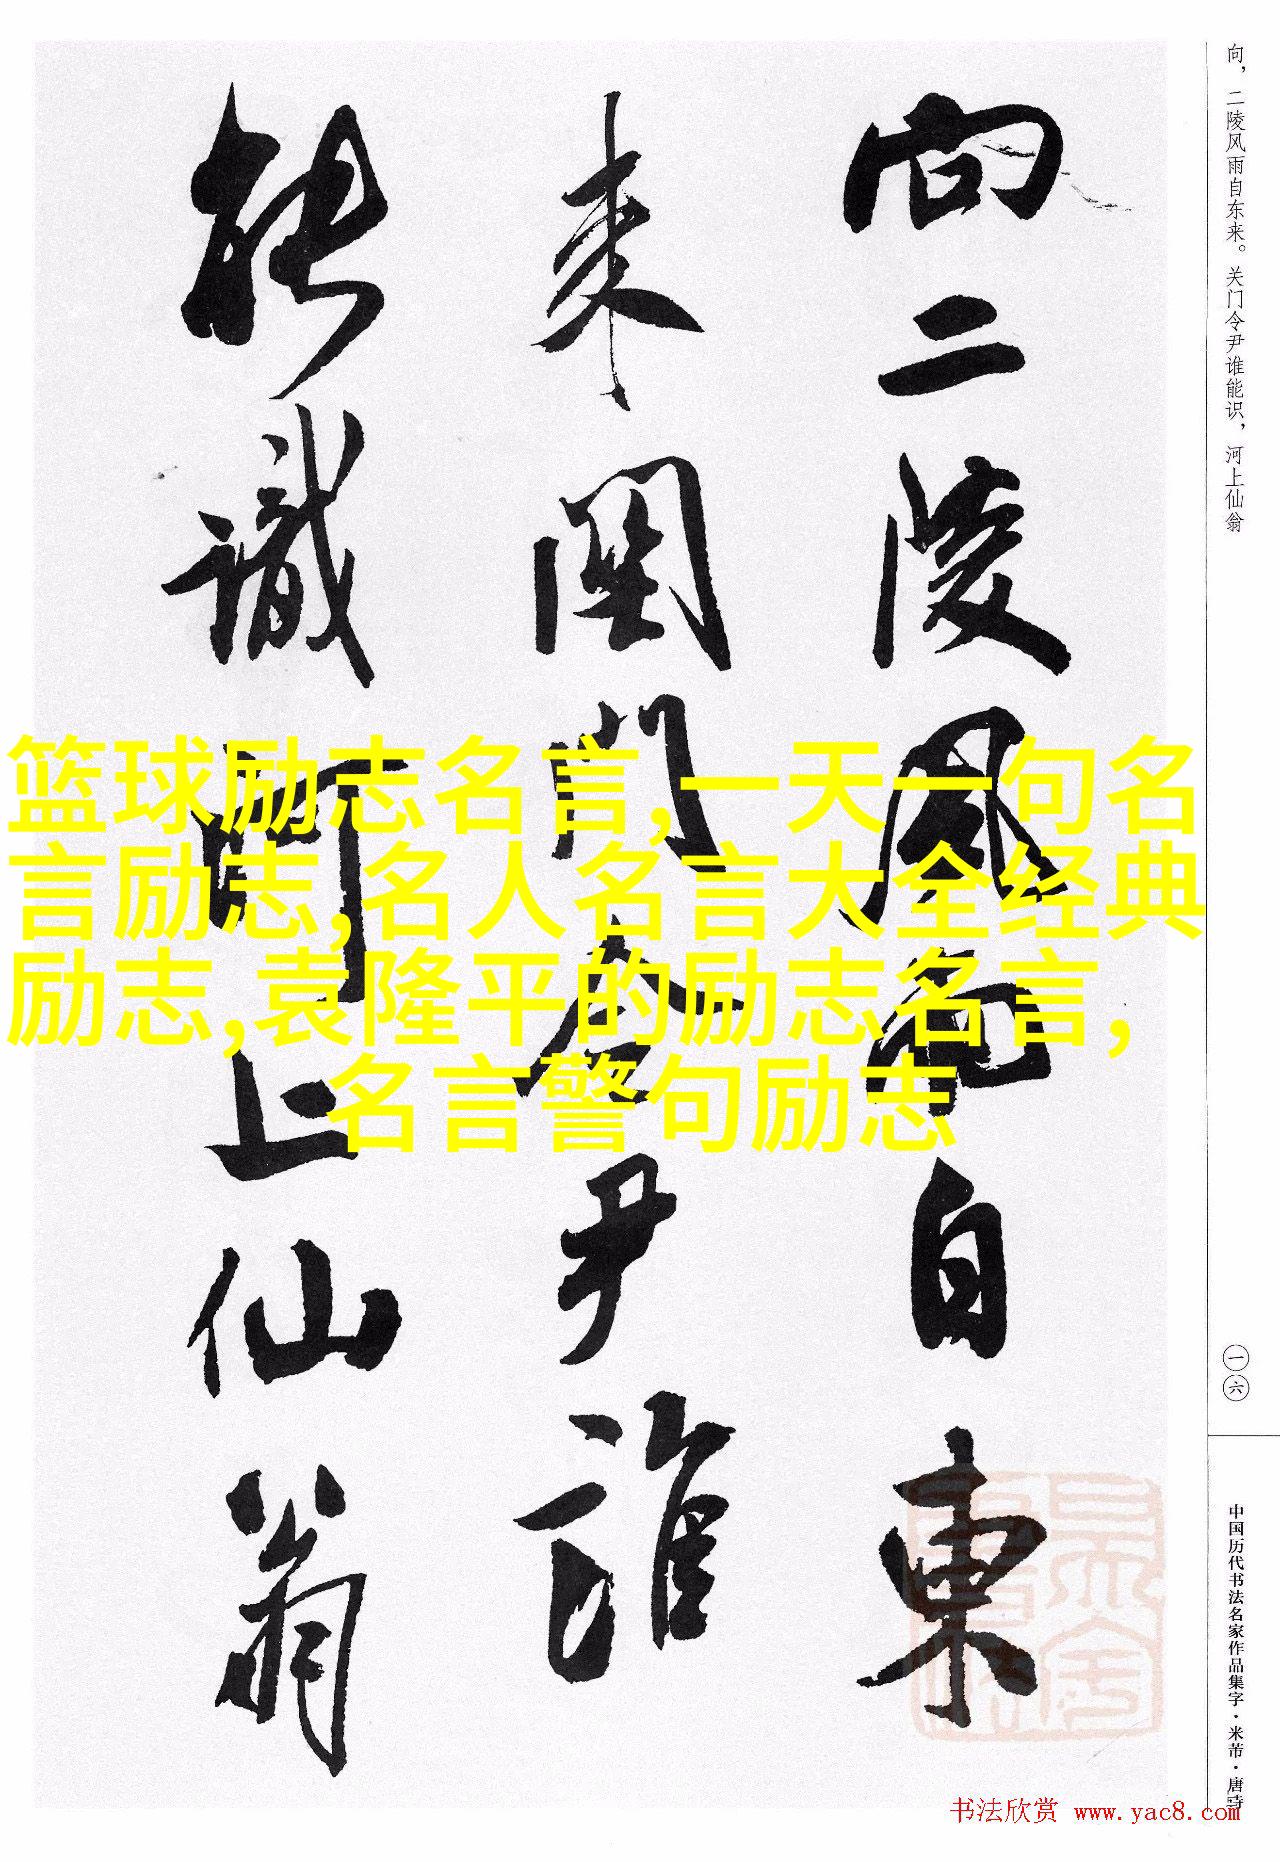 向，二陵风雨自东来。关门令尹谁能识，河上仙翁
向二陵風雨自東
来關門令尹誰
能識河上仙翁
篮球励志名言,一天一句名
言励志,名人名言大全经典
励志,袁隆平的励志名言,
名言警句励志
一六
中国历代书法名家作品集字·米芾·唐诗
书法欣赏 www.yac8.com